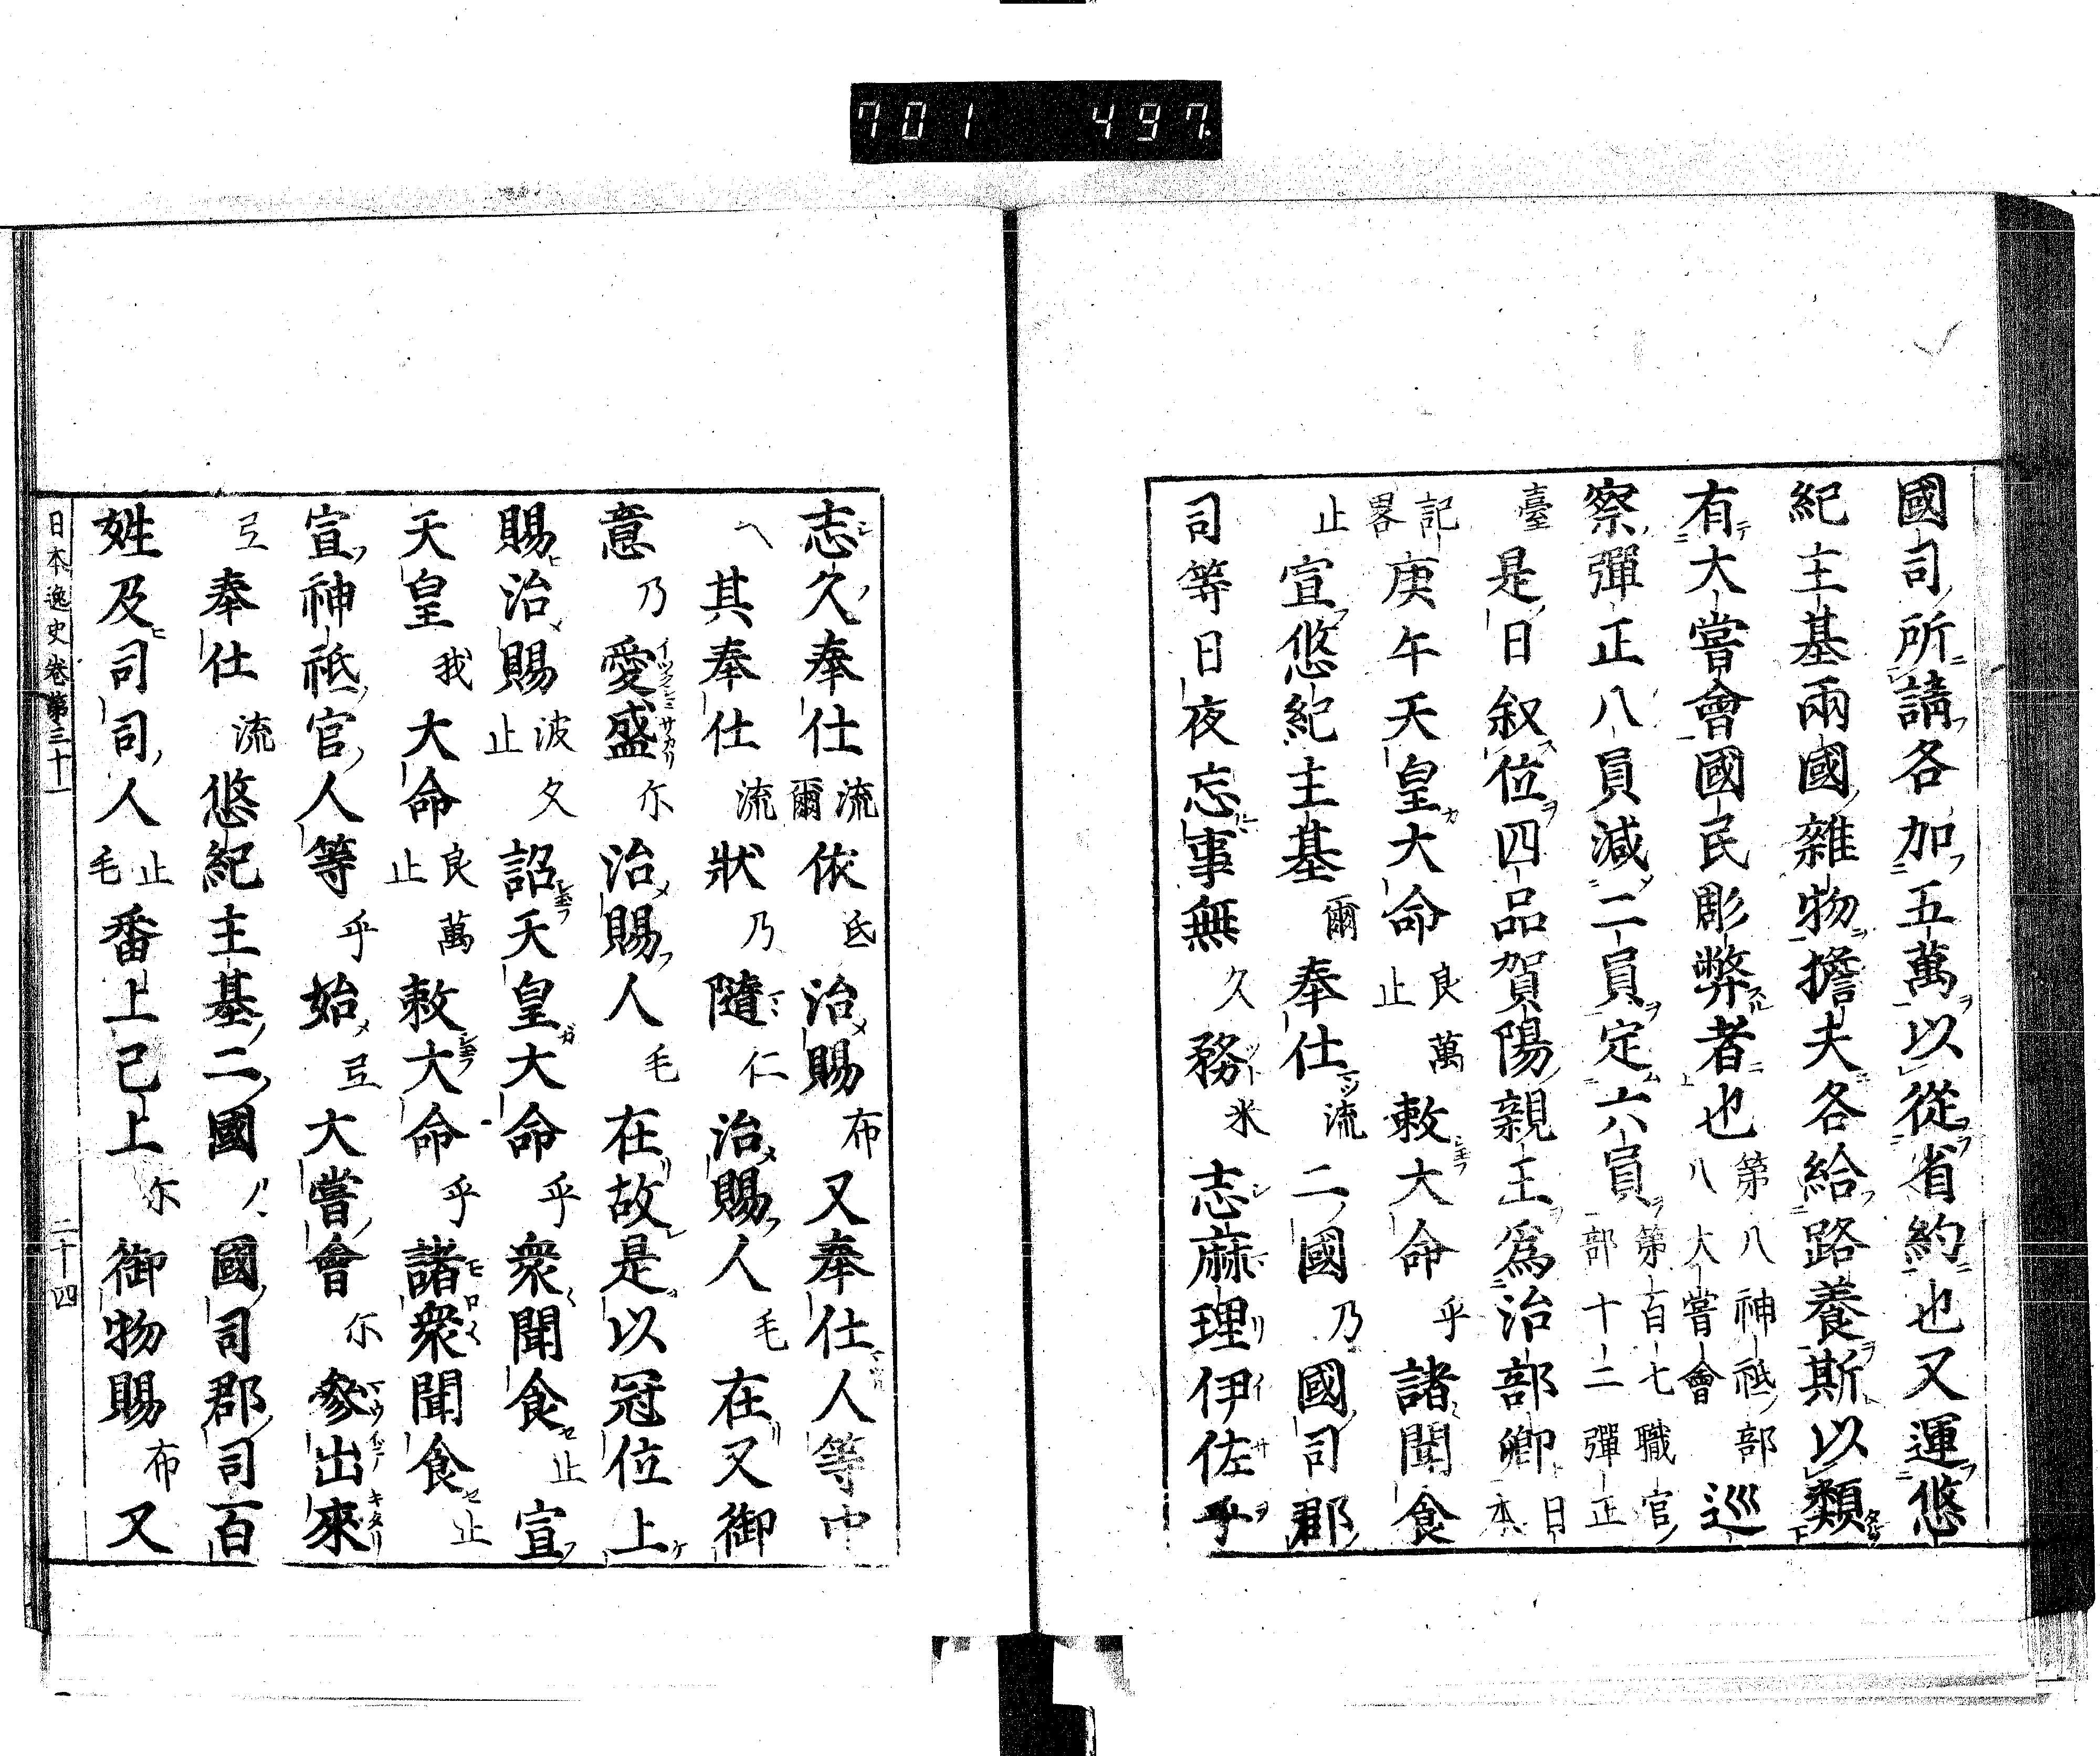 701 497
國司所請各加五萬以從省約也又運悠
紀主基兩國雜物擔夫各給路養斯以類
有大嘗會國民彫弊者也第八神祇部八大嘗會巡
察彈正八員減二員定六員第百七職官部十二彈正
臺是日叙位四品賀陽親王爲治部卿日本
記畧庚午天皇大命良萬止敕大命乎諸聞食
止宣悠紀主基爾奉仕流二國乃國司郡
司等日夜忘事無久務米志麻理伊佐乎
志久奉仕流爾依氐治賜布又奉仕人等中
其奉仕流狀乃隨仁治賜人毛在又御
意乃愛盛尓治賜人毛在故是以冠位上
賜治賜波久止詔天皇大命乎衆聞食止宣
天皇我大命良萬止敕大命乎諸衆聞食止
宣神祇官人等乎始弖大嘗會尓參出來
弖奉仕流悠紀主基二國ノ國司郡司百
姓及司司人止毛番上已上尓御物賜布又
日本逸史卷第三十一 二十四